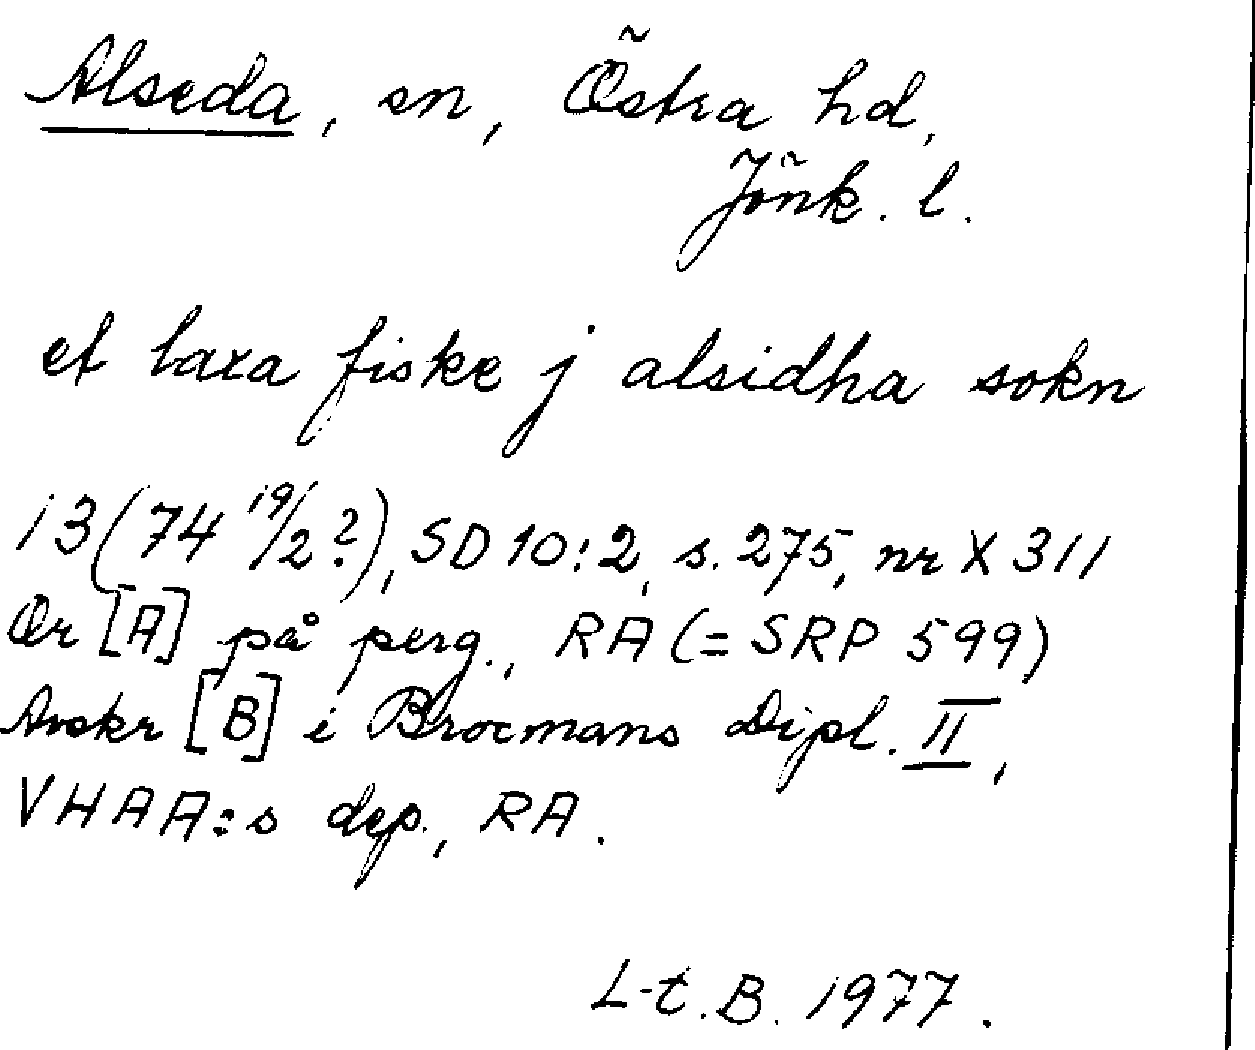 Alseda, sn, Östra hd,
Jönk. l.
et laxa fiske j alsidha sokn
13(74 19/2?), SD 10:2, s. 275, nr X 311
Or [A] på perg., RA (= SRP 599)
Avskr [B] i Brocmans Dipl. II,
VHAA:s dep., RA.
L-t. B. 1977.